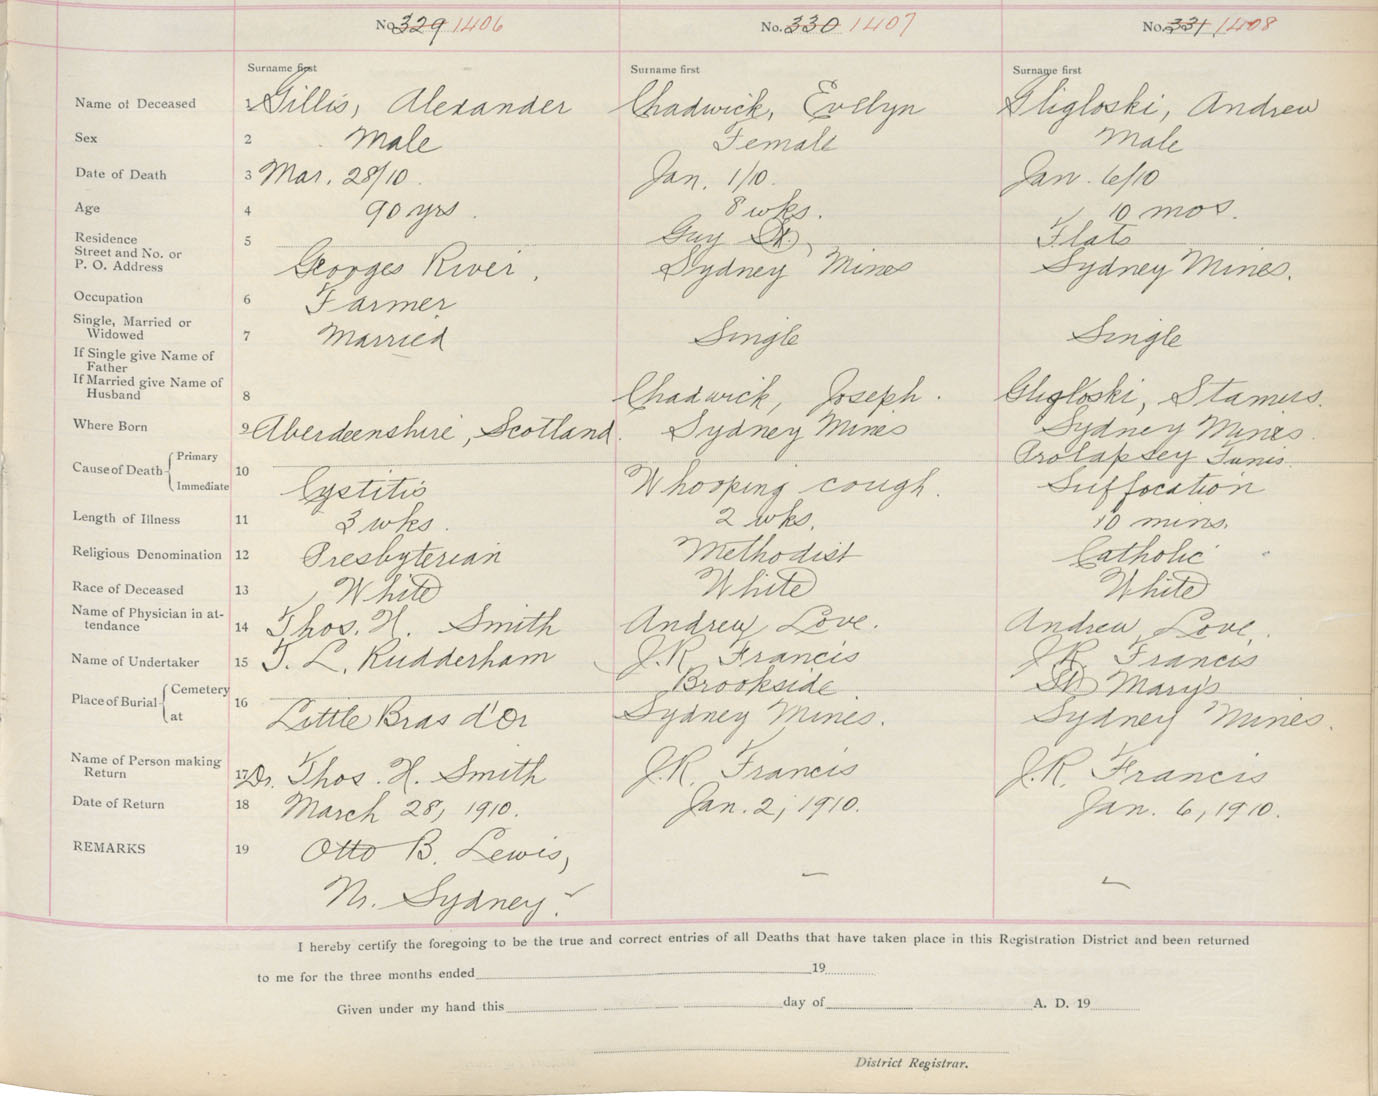 No. 329 1406 No. 330 1407 No. 331 1408
Surname first Surname first Surname first
Name of Deceased 1 Gillis, Alexander Chadwick, Evelyn Gligloski, Andrew
Sex 2 Male Female Male
Date of Death 3 Mar. 28/10. Jan. 1/10. Jan. 6/10
Age 4 90 yrs. 8 wks. 10 mos.
Residence 5 Guy St., Flats
Street and No. or
P. O. Address Georges River, Sydney Mines Sydney Mines.
Occupation 6 Farmer
Single, Married or
Widowed 7 Married Single Single
If Single give Name of
Father
If Married give Name of
Husband 8 Chadwick, Joseph. Gligloski, Stamus.
Where Born 9 Aberdeenshire, Scotland. Sydney Mines Sydney Mines
Cause of Death Primary 10 Prolapsey Funis.
Immediate Cystitis Whooping cough. Suffocation
Length of Illness 11 3 wks. 2 wks. 10 mins.
Religious Denomination 12 Presbyterian Methodist Catholic
Race of Deceased 13 White White White
Name of Physician in at-
tendance 14 Thos. H. Smith Andrew Love. Andrew Love.
Name of Undertaker 15 T. L. Rudderham J.R. Francis J.R. Francis
Place of Burial Cemetery 16 Brookside St Mary's
at Little Bras d'Or Sydney Mines. Sydney Mines.
Name of Person making
Return 17 Dr. Thos. H. Smith J.R. Francis J.R. Francis
Date of Return 18 March 28, 1910. Jan. 2, 1910. Jan. 6, 1910.
REMARKS 19 Otto B. Lewis,
Nr. Sydney.
I hereby certify the foregoing to be the true and correct entries of all Deaths that have taken place in this Registration District and been returned
to me for the three months ended 19
Given under my hand this day of A. D. 19
District Registrar.